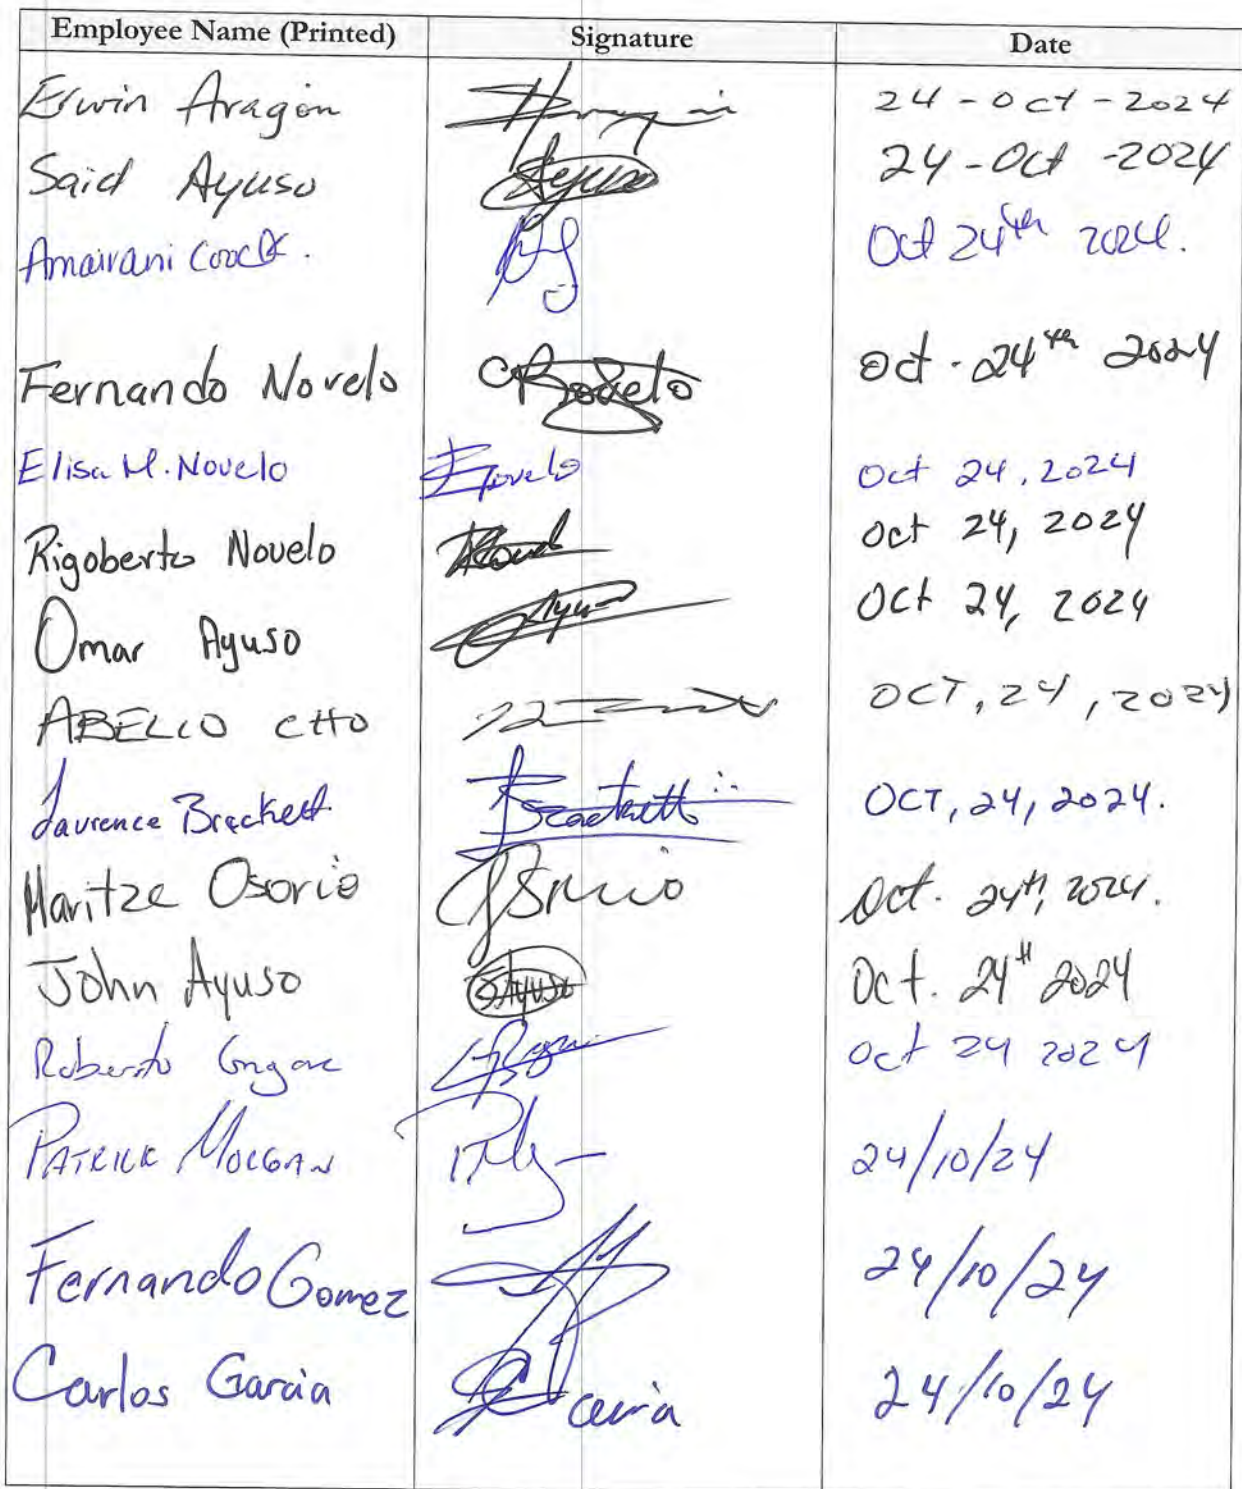 Employee Name (Printed) Signature Date
Erwin Aragón 24-Oct-2024
Said Ayuso Ayuso 24-Oct-2024
Amairani Oct 24th 2024.
Fernando Novelo Novelo Oct. 24th 2024
Elisa M. Novelo Novelo Oct 24, 2024
Rigoberto Novelo Oct 24, 2024
Omar Ayuso Ayuso Oct 24, 2024
ABELIO CHO OCT, 24, 2024
Laurence Brackett. Brackett OCT, 24, 2024.
Maritze Osorio Osorio Oct. 24th, 2024.
John Ayuso Ayuso Oct. 24th 2024
Roberto Oct 24 2024
PATRICK MORGAN 24/10/24
Fernando Gomez 24/10/24
Carlos Garcia 24/10/24